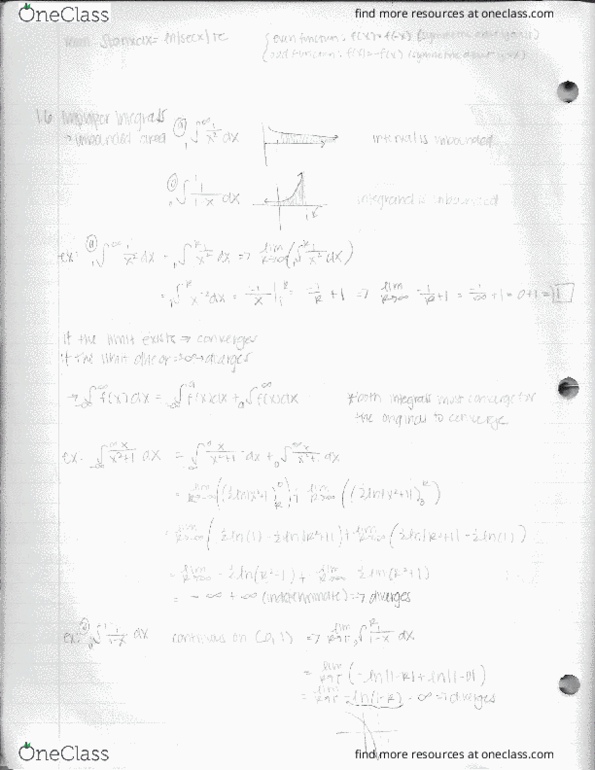 OneClass
find more resources at oneclass.com
∫tanxdx = ln|secx|+c
even function: f(x)=f(-x)
1.6 Improper Integrals
→ unbounded area ① ₁∫^∞ 1/x² dx interval is unbounded
₀∫¹ 1/1-x dx integrand is unbounded
ex: ₁∫^∞ 1/x² dx = ₁∫^R 1/x² dx => lim R→∞ (₁∫^R 1/x² dx)
= ₁∫^R x⁻² dx = -1/x |₁^R = -1/R + 1 => lim R→∞ -1/R + 1 = -1/∞ + 1 = 0+1 = 1
if the limit exists → converges
if the limit → diverges
→ -∞∫^∞ f(x)dx = -∞∫^a f(x)dx + a∫^∞ f(x)dx *both integrals must converge for
the original to converge
ex: -∞∫^∞ x/x²+1 dx = -∞∫^0 x/x²+1 dx + 0∫^∞ x/x²+1 dx
= lim R→-∞ ((½ln|x²+1|)) + lim R→∞ ((½ln|x²+1|)₀^R)
= lim R→-∞ (½ln(1) - ½ln|R²+1|) + lim R→∞ (½ln|R²+1| - ½ln(1))
= lim - ½ln(R²+1) + lim R→∞ ½ln(R²+1)
= -∞ + ∞ (indeterminate) => diverges
ex: ₀∫¹ 1/1-x dx continuous on => lim R→1⁻ ₀∫^R 1/1-x dx
= lim R→1⁻ (-ln|1-R| + ln|1-0|)
= lim R→1⁻ -ln(1-R) = ∞ => diverges
OneClass
find more resources at oneclass.com